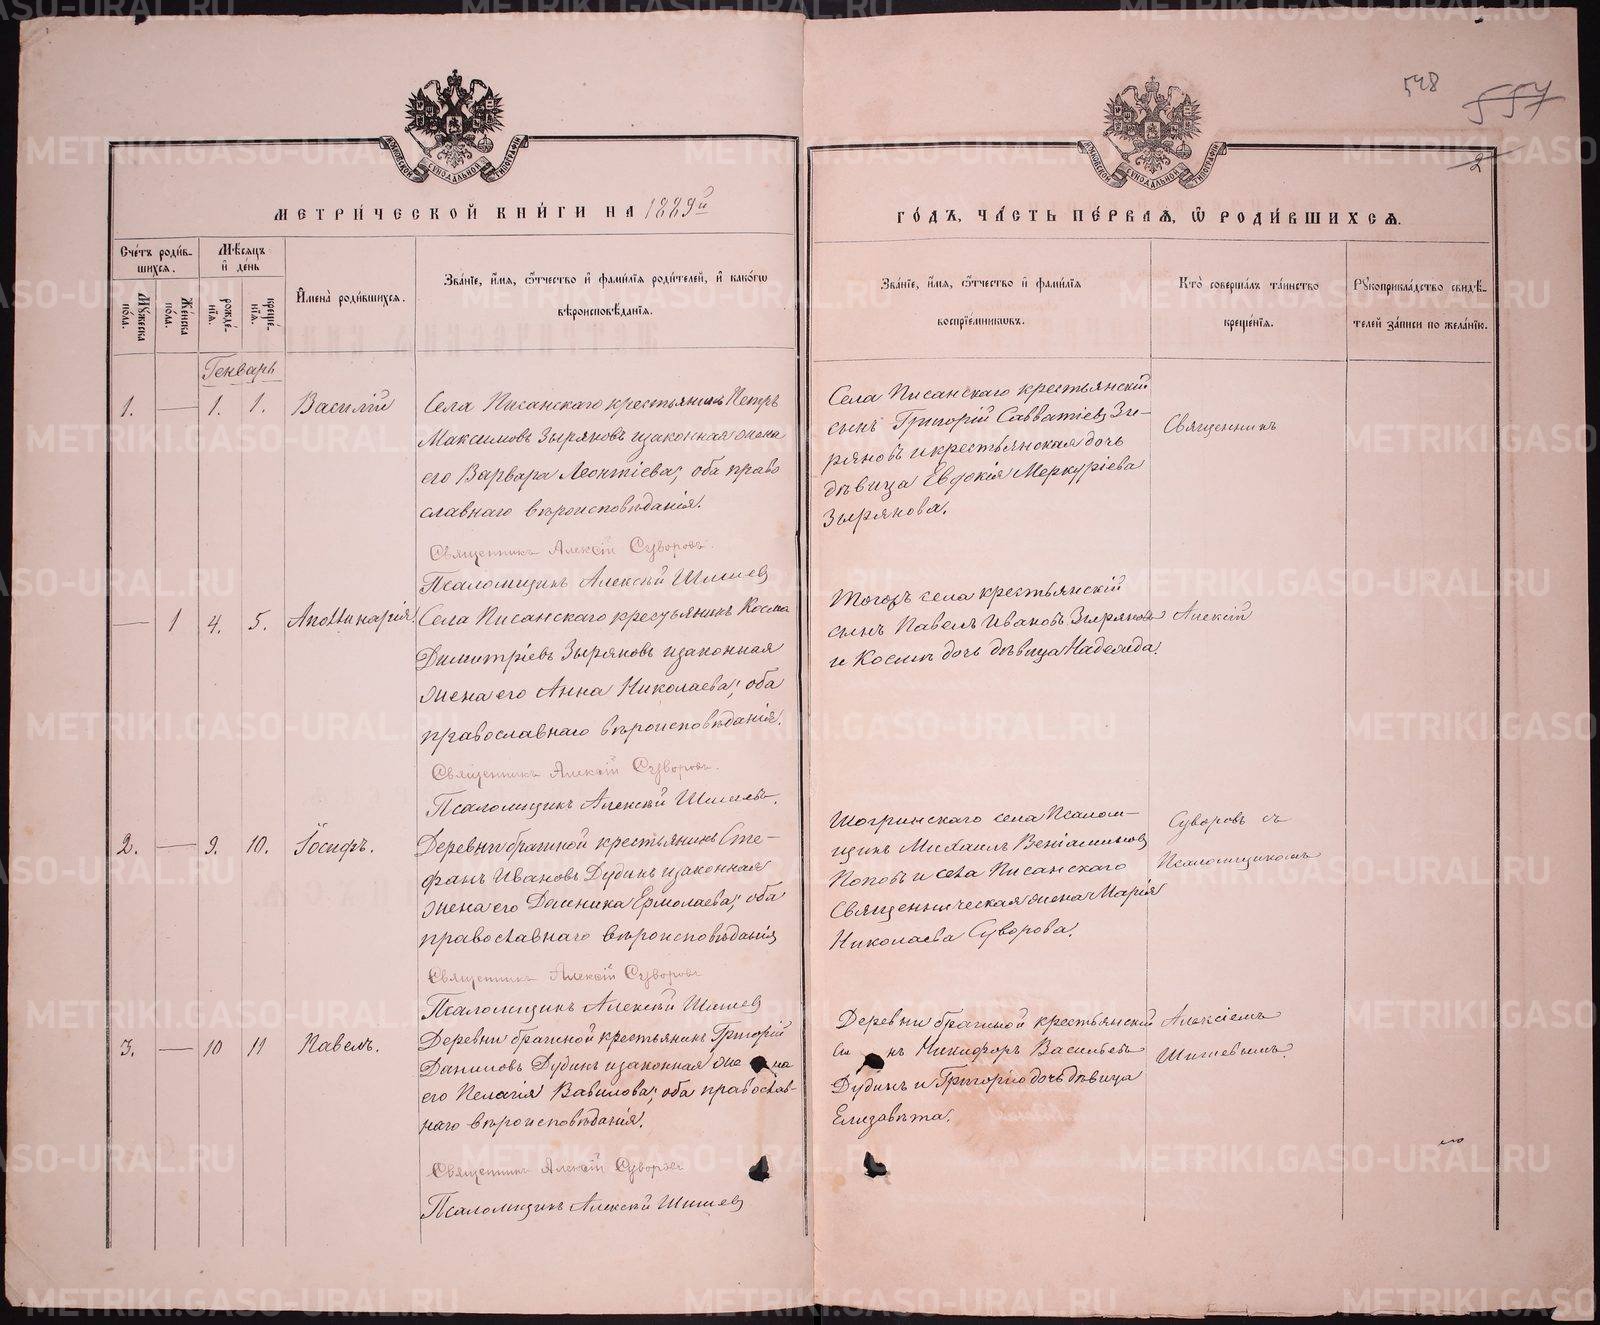 548
557
2
МОСКОВСКОЙ СѴНОДАЛЬНОЙ ТИПОГРАФІИ
МОСКОВСКОЙ СѴНОДАЛЬНОЙ ТИПОГРАФІИ
МЕТРИ́ЧЕСКОЙ КНИ́ГИ НА 1889й
ГО́ДЪ, ЧА́СТЬ ПЕ́РВАѦ, Ѡ РОДИ́ВШИХСѦ.
Сче́тъ роди́в-
шихсѧ.
Мѣ́сѧцъ
и҆ де́нь
Мꙋ́жеска
по́ла.
Же́нска
по́ла.
рожде́-
нїѧ.
креще́-
нїѧ.
И҆мена̀ роди́вшихсѧ.
Зва́нїе, и҆́мѧ, ѻ҆́тчество и҆ фами́лїѧ роди́телей, и҆ како́гѡ
вѣроисповѣ́данїѧ.
Зва́нїе, и҆́мѧ, ѻ҆́тчество и҆ фами́лїѧ
воспрїе́мникѡвъ.
Кто̀ соверша́лъ та́инство
креще́нїѧ.
Рꙋкоприкла́дство свидѣ́-
телей за́писи по жела́нїю.
Генварь
1. — 1. 1. Василій
Села Писанскаго крестьянинъ Петръ
Максимовъ Зыряновъ и законная жена
его Варвара Леонтіева; оба право
славнаго вѣроисповѣданія.
Священникъ Алексій Суворовъ.
Псаломщикъ Алексѣй Шишев
Села Писанскаго крестьянскій
сынъ Григорій Савватіев Зы-
ряновъ и крестьянская дочь
дѣвица Евдокія Меркуріева
Зырянова.
Священникъ
— 1 4. 5. Аполлинарія.
Села Писанскаго крестьянинъ Косма
Димитріевъ Зыряновъ и законная
жена его Анна Николаева; оба
православнаго вѣроисповѣданія.
Священникъ Алексій Суворовъ.
Псаломщикъ Алексѣй Шишевъ.
Тогожъ села крестьянскій
сынъ Павелъ Ивановъ Зыряновъ
и Космы дочь дѣвица Надежда.
Алексій
2. — 9. 10. Іосифъ.
Деревни брагиной крестьянинъ Сте-
фанъ Ивановъ Дудинъ и законная
жена его Домника Ермолаева; оба
православнаго вѣроисповѣданія
Священникъ Алексій Суворовъ
Псаломщикъ Алексѣй Шишев
Шогринскаго села Псалом-
щикъ Михаилъ Веніаминовъ
Поповъ и села Писанскаго
Священническая жена Марія
Николаева Суворова.
Суворовъ съ
Псаломщикомъ
3. — 10 11 Павелъ.
Деревни брагиной крестьянинъ Григорій
Даниловъ Дудинъ и законная жена
его Пелагія Вавилова; оба православ-
наго вѣроисповѣданія.
Священникъ Алексій Суворовъ
Псаломщикъ Алексѣй Шишев
Деревни брагиной крестьянскій
сынъ Никифоръ Васильевъ
Дудинъ и Григорію дочь дѣвица
Елизавета.
Алексіемъ
Шишевымъ.
METRIKI.GASO-URAL.RU